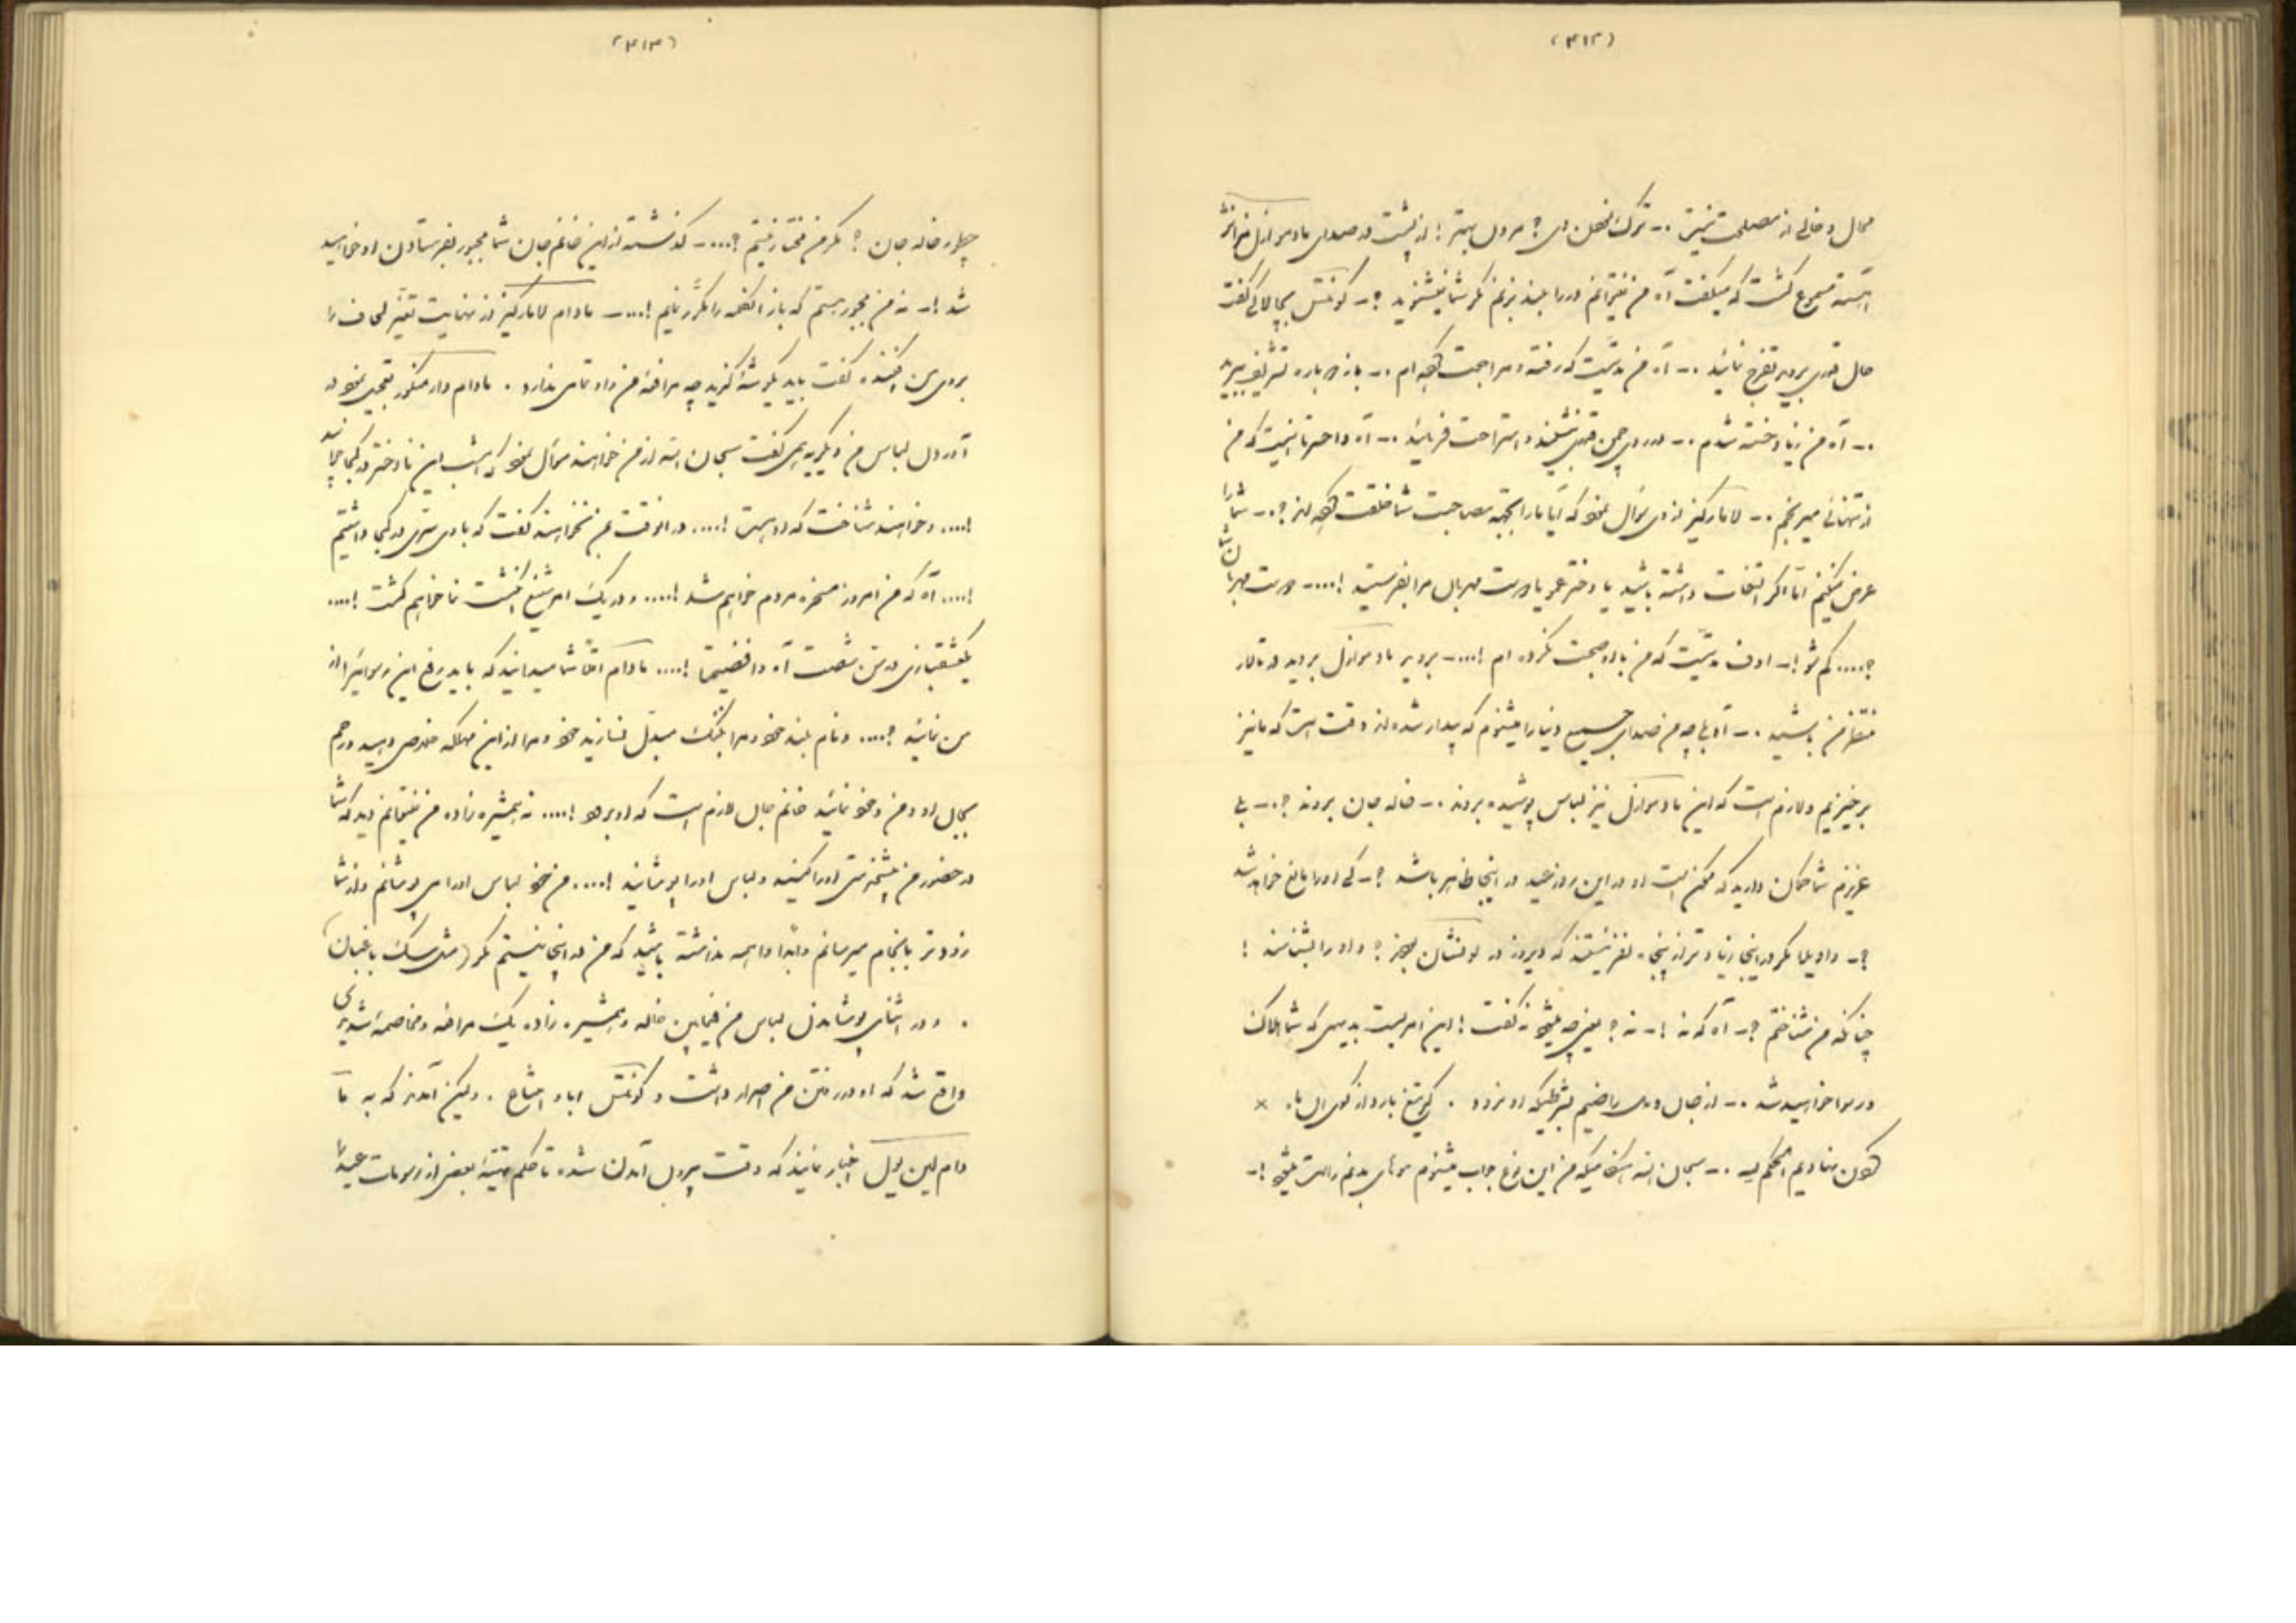 (۴۱۲)
محال و خالی از مصلحت نیست .-- ترک فعلی وی؟ مردن بهتر! از پشت در صدای مادموازل
آهسته مسموع گشت که میگفت آه من نمیتوانم در را بلند بزنم مگر شما نمیشنوید ؟- کونتس بچالاکی گفت
حال قدری بروید تفرج نمائید .-- آه من مدتیست که رفته و مراجعت کرده ام .-- باز دوباره تشریف ببرید
.-- آه من زیاد خسته شدم .-- در روی چمن قدری بنشینید و استراحت فرمائید .-- آه واحسرتا نیست که من
از تنهائی میرنجم .-- لامارکیز از وی سؤال نمود که آیا ما را بجهة مصاحبت شما خلقت کرده اند ؟.-- شما را
عرض نمیکنم اما اگر التفات داشته باشید یا دختر عمو یا دوست مهربان مرا بفرستید !...-- دوست مهربان شما
؟.... کم شو !-- اوف مدتیست که من با او صحبت نکرده ام !...-- بروید مادموازل بروید در تالار
منتظر من باشید .-- آه بلی چه من صدای جمیع دنیا را میشنوم که بیدار شده اند وقت است که ما نیز
برخیزیم و لازم است که این مادموازل نیز لباس پوشیده برود .-- خاله جان برود ؟.-- بلی
عزیزم شما گمان دارید که ممکن است او در این روز عید در اینجا ظاهر باشد ؟-- کی او را مانع خواهد شد
؟-- واویلا مگر در اینجا زیادتر از پنجاه نفر نیستند که دیروز در لونشان بودند ؟ و او را بشناسند !
چنانکه من شناختم ؟-- آه که نه !-- نه ؟ یعنی چه میشود نه گفت ! این امریست بدیهی که شما هلاک
و رسوا خواهید شد .-- از جان و دل راضیم بشرطیکه او نرود . گر تیغ بارد از کوی آن ماه ×
گردن نهادیم الحکم لله .-- سبحان الله هنگامیکه من این نوع جواب میشنوم موهای بدنم راست میشود !--
(۴۱۳)
چطور خاله جان ؟ مگر من مختار نیستم ؟...-- گذشته از این خانم جان شما مجبور بفرستادن او خواهید
شد !-- نه من مجبور هستم که باز آنکلمه را مکرر نمایم !...-- مادام لامارکیز از نهایت تغیر لحاف را
بروی من افکنده گفت باید یکی گوشه گزید چه مرافعهٔ من و او تمامی ندارد . مادام دارمنکور تعجیل نمود در
آوردن لباس من و بگریه همی گفت سبحان الله از من خواهند سؤال نمود که امشب این تازه دختر در کجا خوابید
!.... و خواهند شناخت که او هست !.... در آنوقت بمن نخواهند گفت که با وی سری در کجا داشتیم
!.... آه که من امروز مسخرهٔ مردم خواهم شد !.... و در یک امر شنیع انگشت نما خواهم گشت !....
بعشقبازی در سن شصت آه وافضیحتا !.... مادام آقا شما میدانید که باید رفع این رسوائیرا از
من نمائید ؟.... و نام بلند خود را بننگ مبدل نسازید خود و مرا از این مهلکه خلاص دهید و رحم
بحال او و من و خود نمائید خانم جان لازم است که او برود !.... نه همشیره زاده من نمیتوانم دید که شما
در حضور من پیشخدمتی او را کنید و لباس او را پوشانید !.... من خود لباس او را می پوشانم و از شما
زودتر بانجام میرسانم و ابدا واهمه نداشته باشید که من در اینجا نیستم مگر (مثل سک باغبان)
. و در اثنای پوشاندن لباس من فیمابین خاله و همشیره زاده یک مرافعه و مخاصمهٔ شدیدی
واقع شد که او در رفتن من اصرار داشت و کونتس ابا و امتناع . ولیکن آمدند که به ما
دام لین یول اخبار نمایند که وقت بیرون آمدن شده تا حکم بتهیهٔ بعضی از رسومات عید را